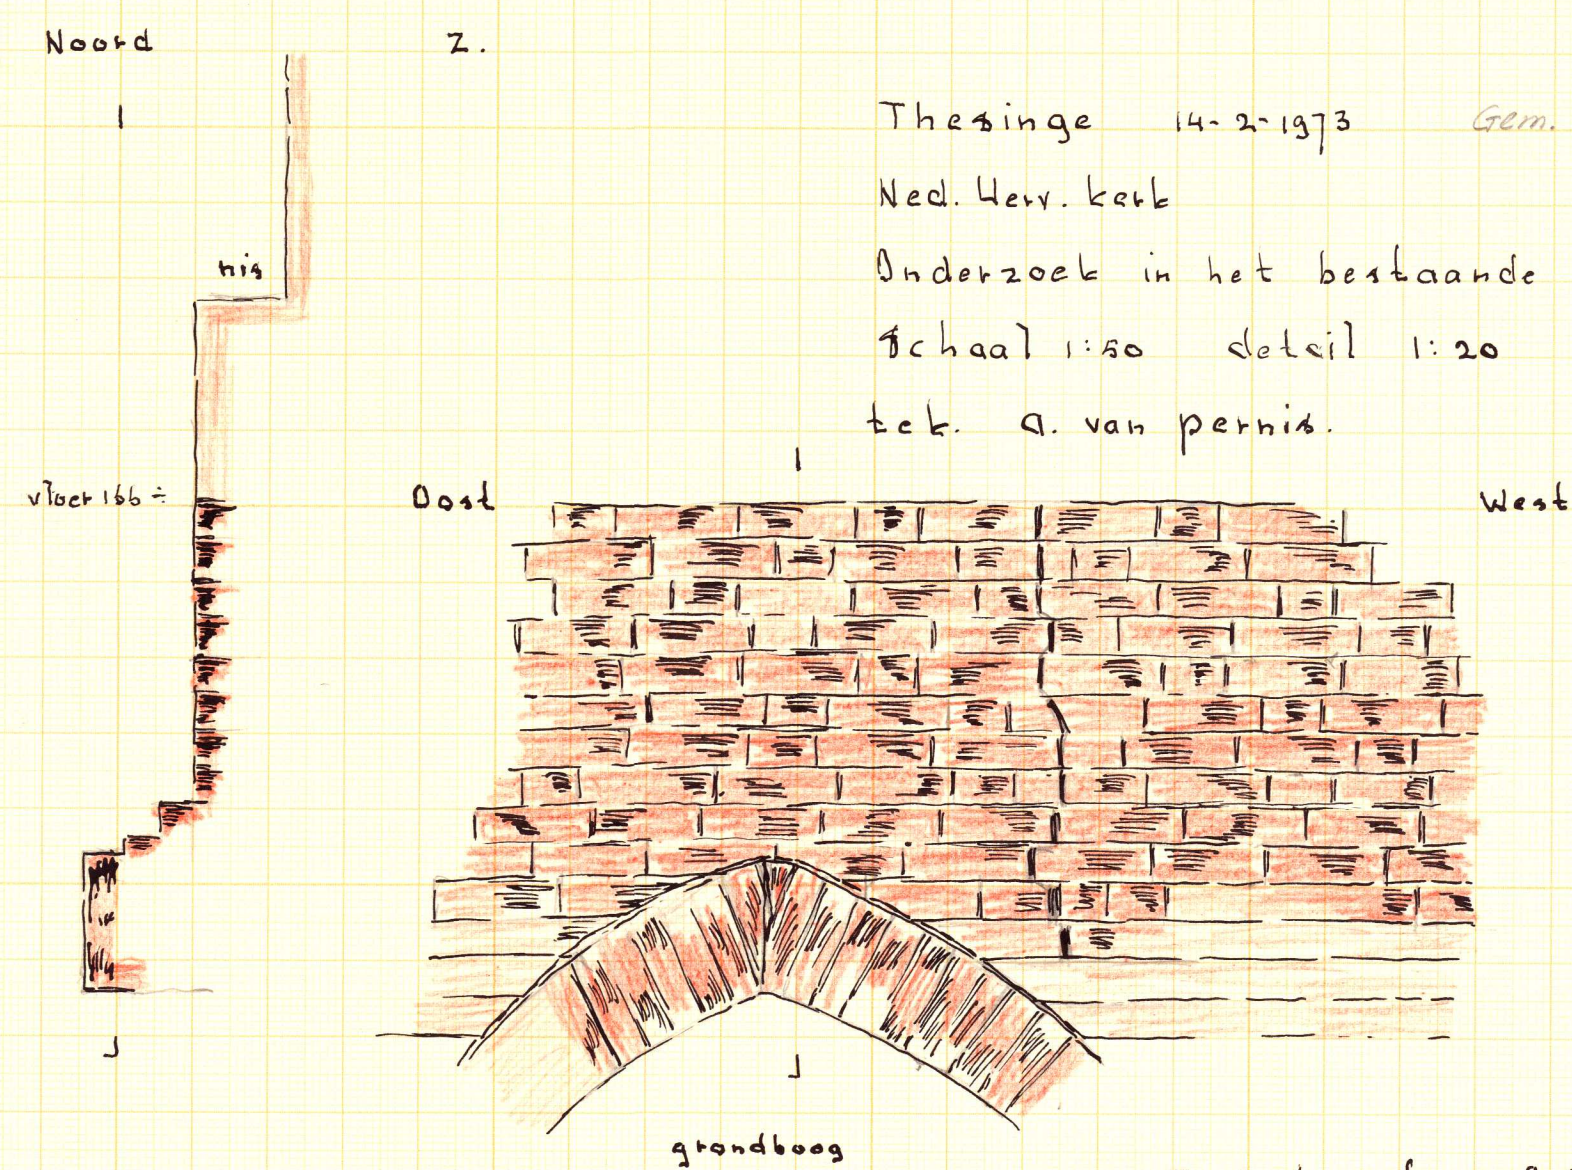 Noord Z.
Thesinge 14-2-1973 Gem.
Ned. Herv. kerk
nis
Onderzoek in het bestaande
schaal 1:50 detail 1:20
tek. a. van pernis.
vloer 166 ÷ Oost West
grondboog